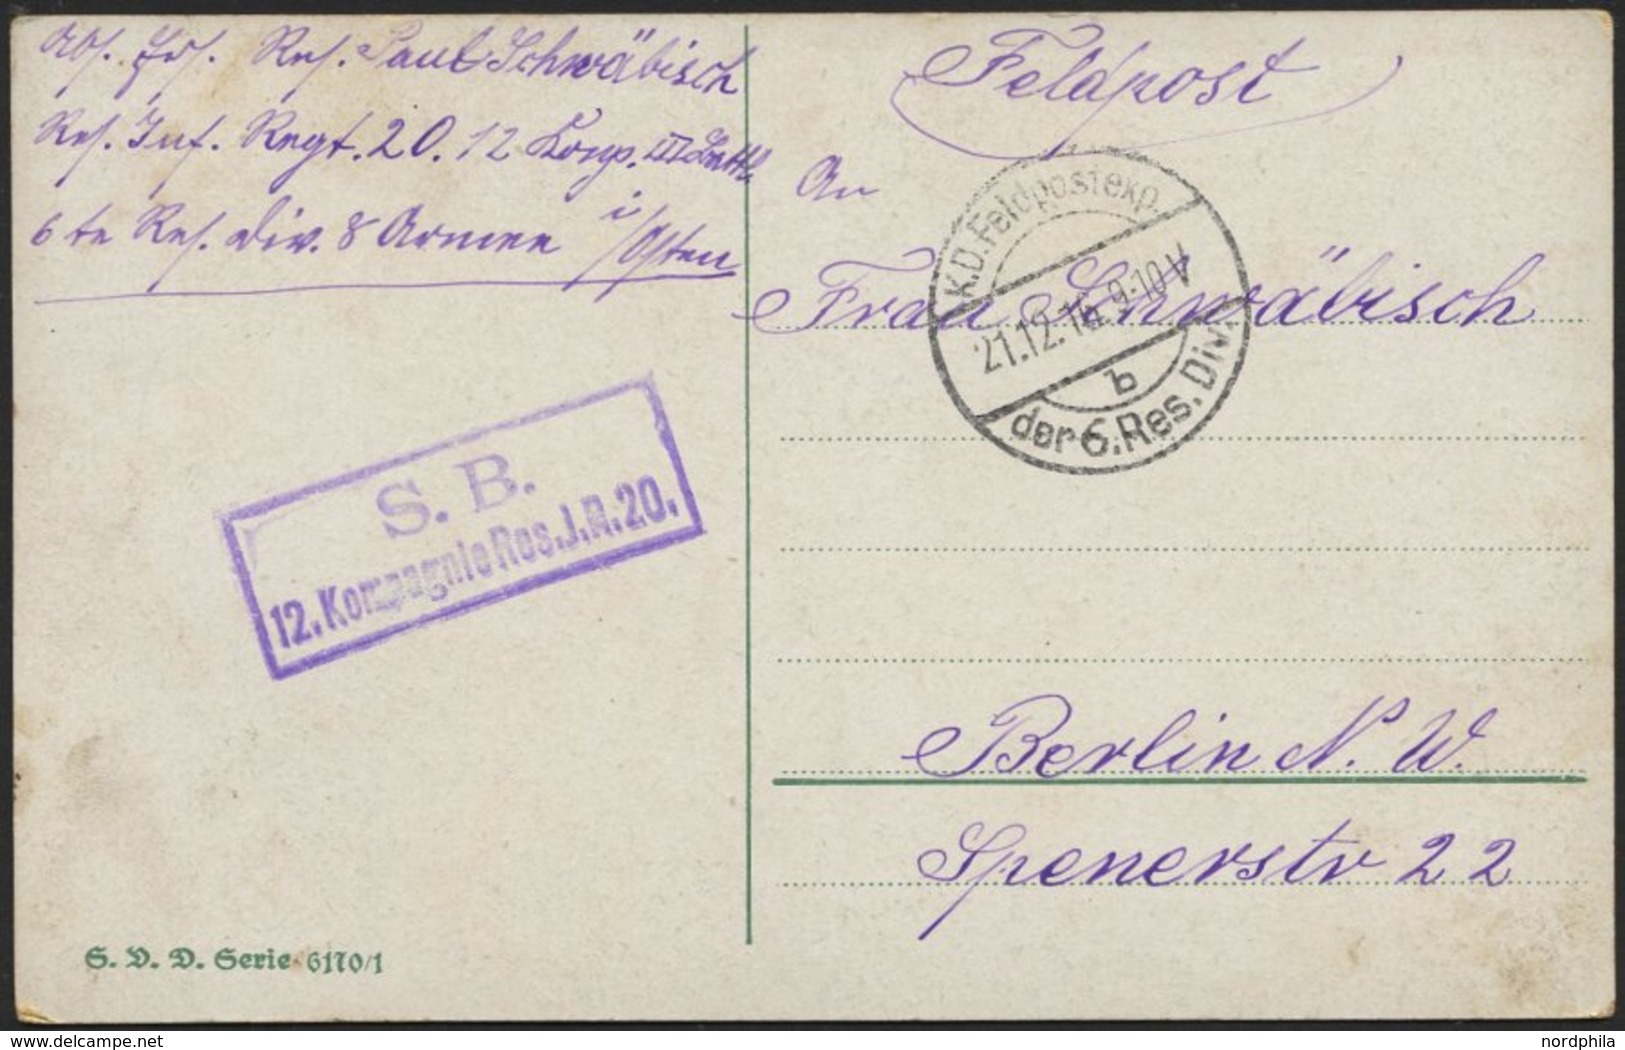 Abs. Ers. Res. Paul Schwäbisch
Res. Inf. Regt. 20. 12 Komp. III Batl.
6te Res. Div. 8 Armee i/Osten
Feldpost
An
Frau Schwäbisch
Berlin N. W.
Spenerstr 22
K.D. Feldpostexp.
21.12. 9-10 V
b
der 6. Res. Div.
S. B.
12. Kompagnie Res. J. R. 20.
S. V. D. Serie 6170/1
nordphila